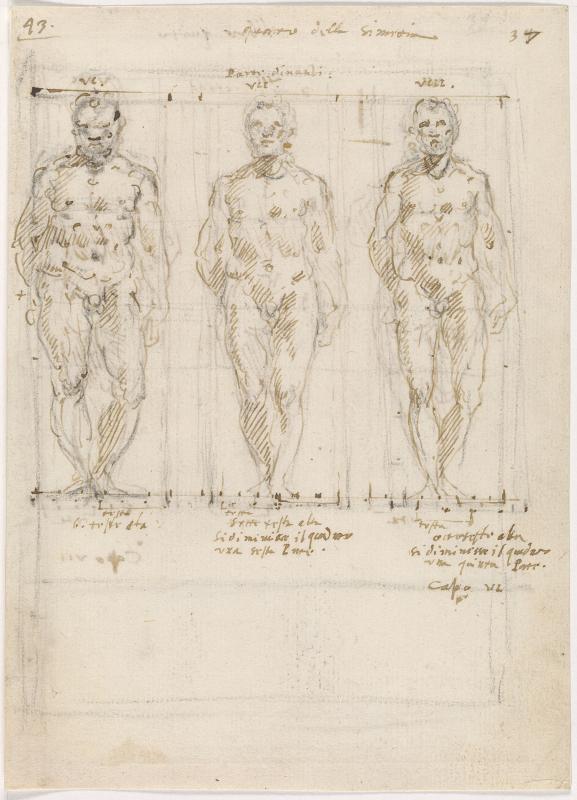 43.
quarto della Simetria
37
Parte dinanzi.
VI.
VII.
VIII.
testa
6. teste alta
testa
sette teste alta
si diminisce il quadro
una sesta Parte.
testa
otto teste alta
si diminisce il quadro
una quinta Parte.
Capo VI